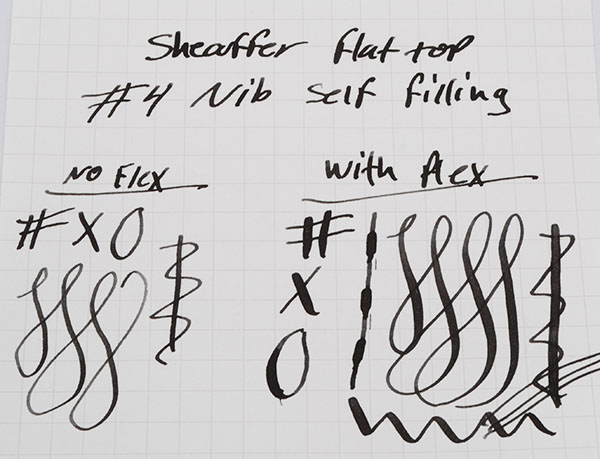 Sheaffer flat top
#4 Nib self filling
No Flex
with flex
# X O
#
X
O